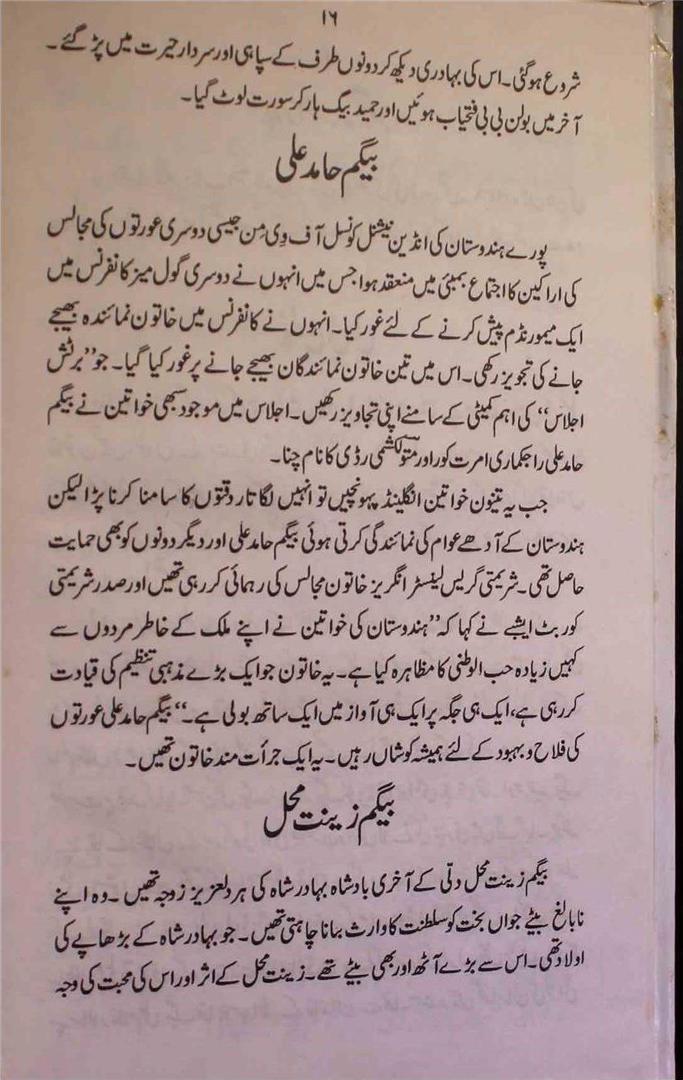 ۱۶
شروع ہوگئی۔ اس کی بہادری دیکھ کر دونوں طرف کے سپاہی اور سردار حیرت میں پڑ گئے۔
آخر میں بولن بی بی فتحیاب ہوئیں اور حمید بیگ ہار کر سورت لوٹ گیا۔
بیگم حامد علی
پورے ہندوستان کی انڈین نیشنل کونسل آف وِی مِن جیسی دوسری عورتوں کی مجالس
کی اراکین کا اجتماع بمبئی میں منعقد ہوا جس میں انہوں نے دوسری گول میز کانفرنس میں
ایک میمورنڈم پیش کرنے کے لئے غور کیا۔ انہوں نے کانفرنس میں خاتون نمائندہ بھیجے
جانے کی تجویز رکھی۔ اس میں تین خاتون نمائندگان بھیجے جانے پر غور کیا گیا۔ جو ”برٹش
اجلاس“ کی اہم کمیٹی کے سامنے اپنی تجاویز رکھیں۔ اجلاس میں موجود سبھی خواتین نے بیگم
حامد علی راجکماری امرت کور اور متولکشمی رڈی کا نام چنا۔
جب یہ تینوں خواتین انگلینڈ پہونچیں تو انہیں لگاتار دقتوں کا سامنا کرنا پڑا لیکن
ہندوستان کے آدھے عوام کی نمائندگی کرتی ہوئی بیگم حامد علی اور دیگر دونوں کو بھی حمایت
حاصل تھی۔ شریمتی گریس لینسٹر انگریز خاتون مجالس کی رہمائی کر رہی تھیں اور صدر شریمتی
کور بٹ ایشبے نے کہا کہ ”ہندوستان کی خواتین نے اپنے ملک کے خاطر مردوں سے
کہیں زیادہ حب الوطنی کا مظاہرہ کیا ہے۔ یہ خاتون جو ایک بڑے مذہبی تنظیم کی قیادت
کر رہی ہے، ایک ہی جگہ پر ایک ہی آواز میں ایک ساتھ بولی ہے۔“ بیگم حامد علی عورتوں
کی فلاح و بہبود کے لئے ہمیشہ کوشاں رہیں۔ یہ ایک جرأت مند خاتون تھیں۔
بیگم زینت محل
بیگم زینت محل دلّی کے آخری بادشاہ بہادر شاہ کی ہر دلعزیز زوجہ تھیں۔ وہ اپنے
نابالغ بیٹے جواں بخت کو سلطنت کا وارث بنانا چاہتی تھیں۔ جو بہادر شاہ کے بڑھاپے کی
اولاد تھی۔ اس سے بڑے آٹھ اور بھی بیٹے تھے۔ زینت محل کے اثر اور اس کی محبت کی وجہ